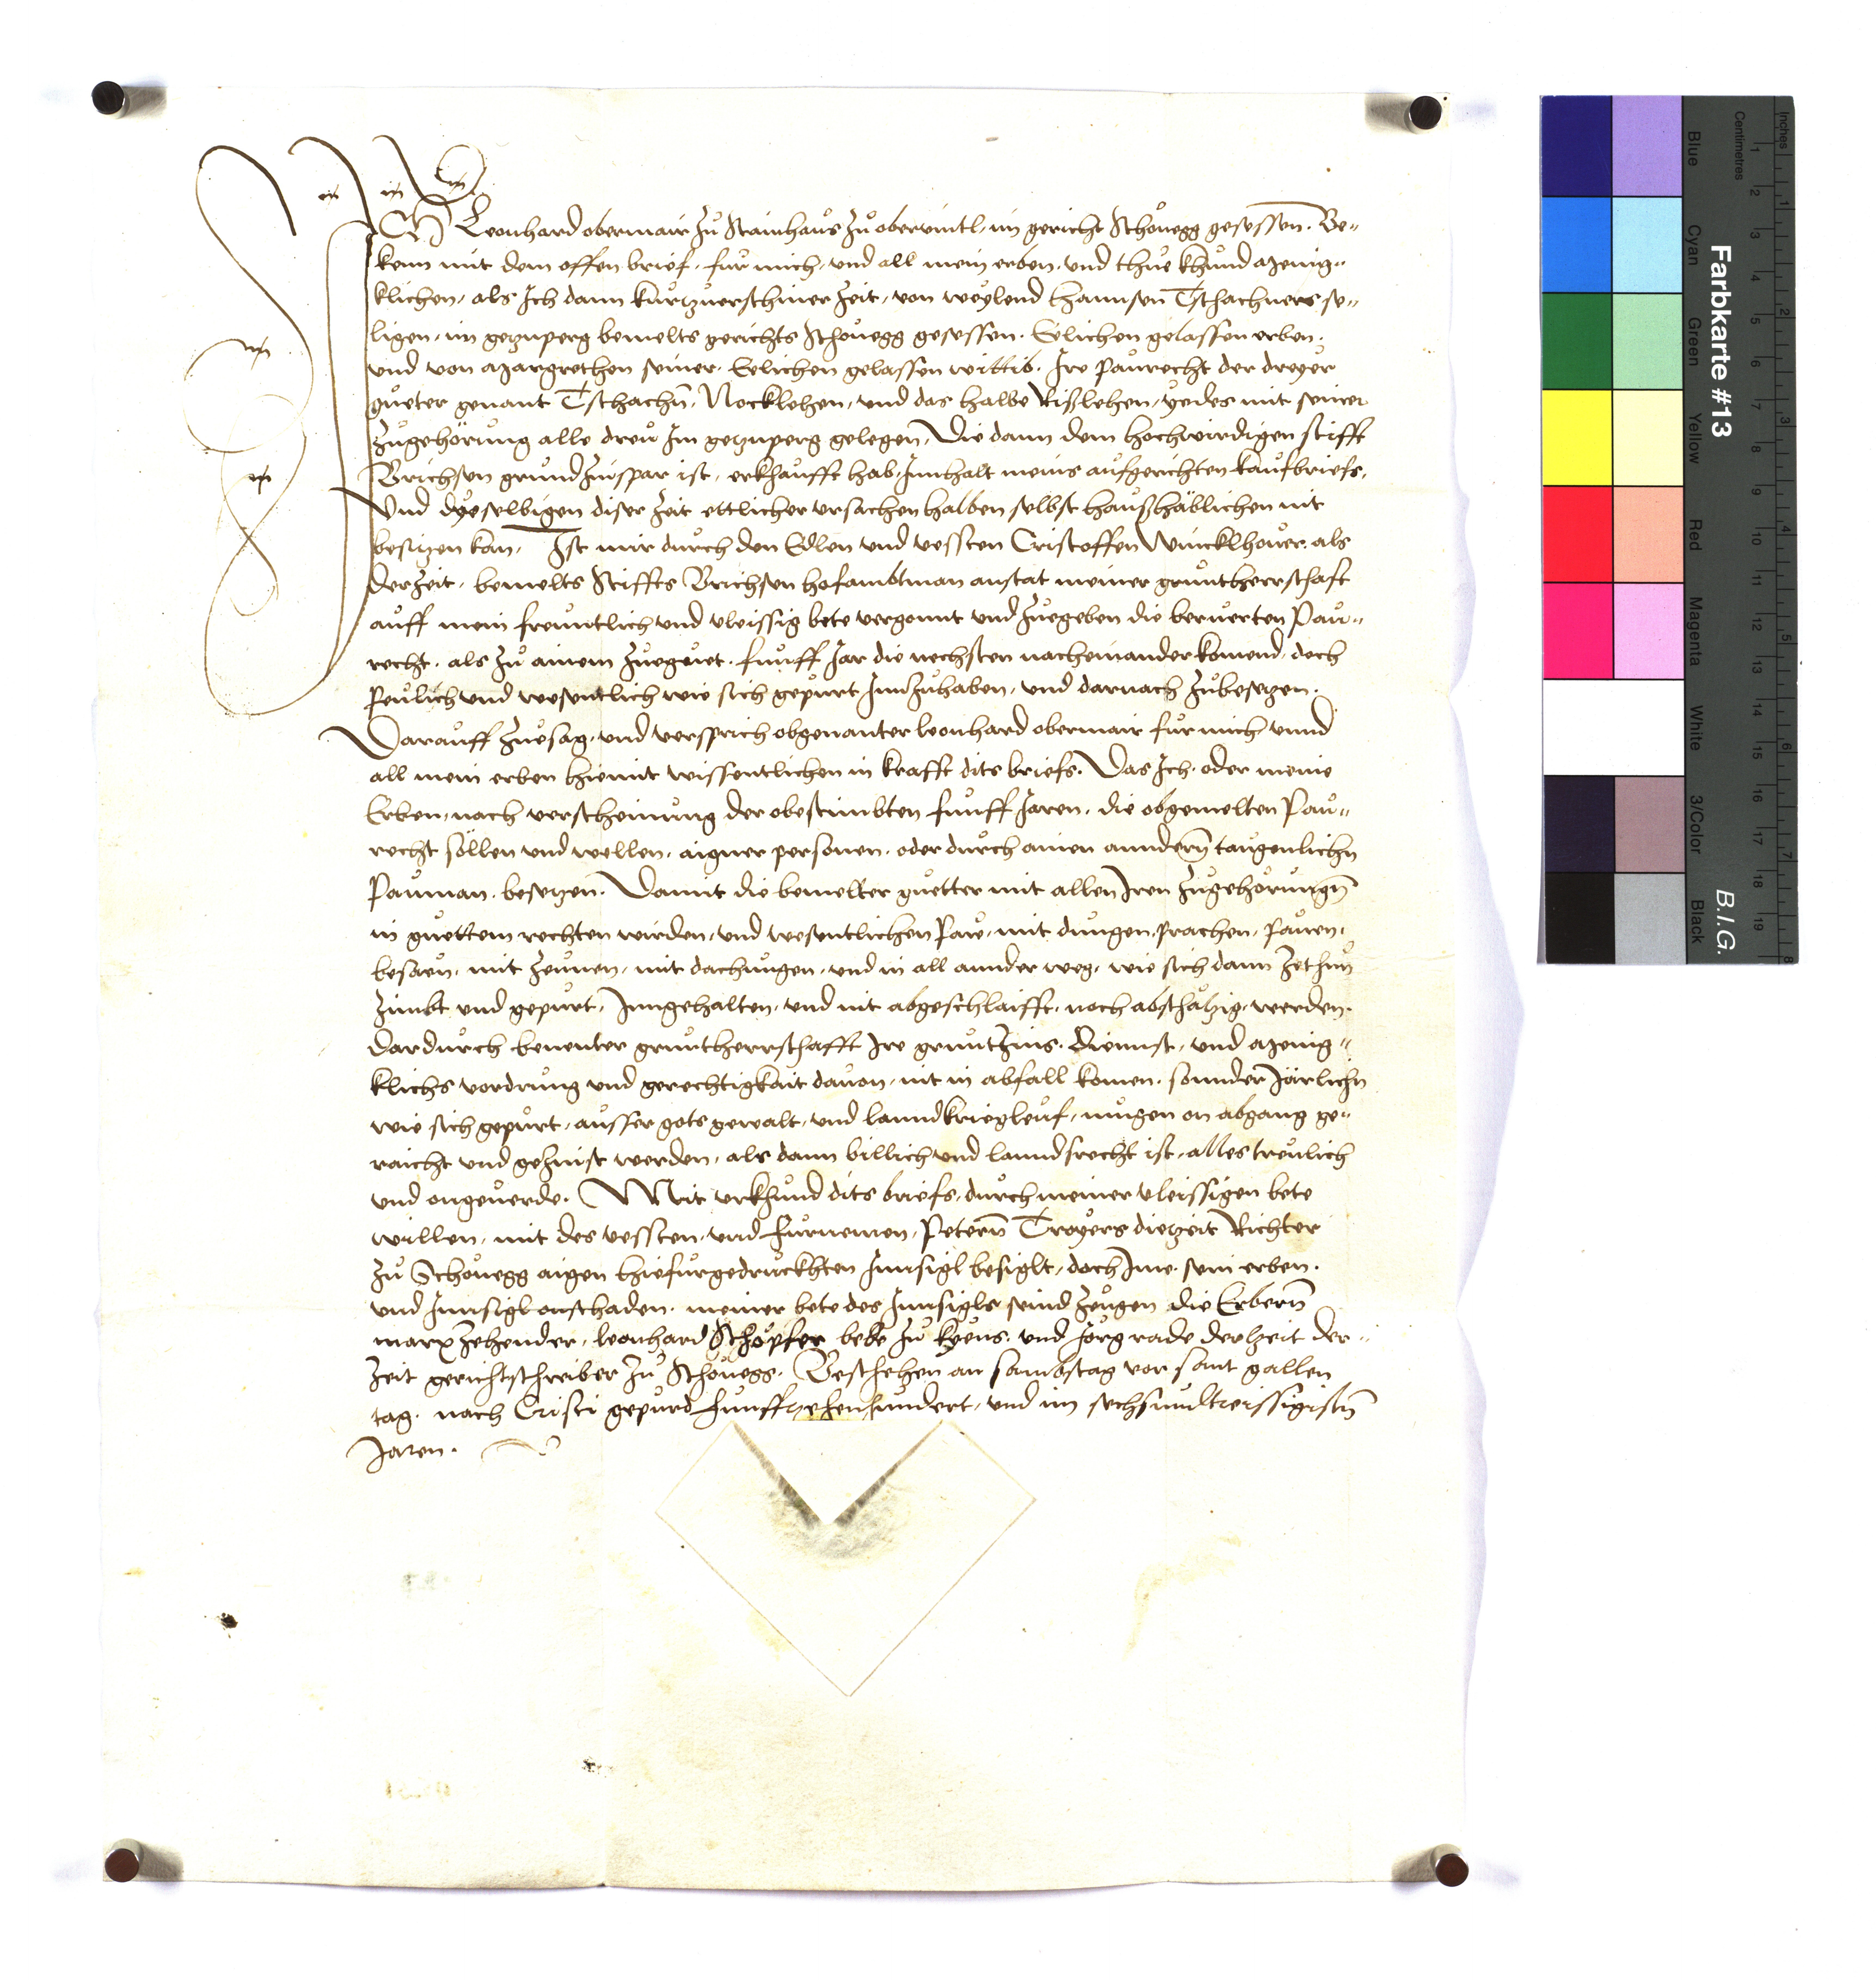 ICh Leonhard obermair Zů Stainhaus Zů obervintl, im gericht Schönegg gesessen. Be„
kenn mit dem offen brief, für mich, und all mein erben, und thue khund menig„
klichen, als Ich dann kurtzuerschiner Zeit, von weylend Hannsen Tschachners se„
ligen, im getznperg bemelts gerichts Schönegg gesessen. Eelichen gelassen erben.
und von Margrethen seiner Eelichen gelassen wittib. Ire Paurecht der dreyer
güeter genant Tschachn, Nocklehen, und das halbe Rißlehen, yedes mit seiner
Zůgehörung alle dreü Im getznperg gelegen, Die dann dem hochwirdigen stifft
Brichsen grundZinspar ist, erkhaufft hab, Innhalt meins aufgerichten kaufbriefs,
Und dyeselbigen diser Zeit ettlicher ursachen halben selbst haußhäblichen nit
besitzen kan, Ist mir durch den Edlen und vessten Cristoffen Wincklhover als
derZeit, bemelts Stiffts Brichsen hofambtman anstat meiner gruntherrschaft
auff mein freuntlich und vleissig bete vergonnt und Zuegeben die beruerten Pau„
recht, als Zů ainem Zuegüet, funff Jar die nechsten nacheinander komend, doch
Peülich und wesentlich wie sich gepürt InnZuhaben, und darnach Zubesetzen.
Darauff Zuesag, und versprich obgenanter leonhard obermair für mich unnd
all mein erben hiemit wissentlichen in krafft dits briefs. Das Ich oder meine
Erben, nach verscheinung der obestimbten funff Jaren, die obgemelten Pau„
recht söllen und wellen, aigner personen, oder durch ainen anndern taugenlichn
Pauman, besetzen. Damit die bemelter guetter mit allen Iren Zugehörungn
in guettem rechten wirden, und wesentlichen Paw, mit dungen, prachen, Pauen,
besäen, mit Zeünen, mit dachungen, und in all annder weg, wie sich dann Zethun
Zimbt und gepürt, Inngehalten, und nit abgeschlaifft, noch abschätzig, werden.
dardurch benenter gruntherrschafft Ire gruntZins. Diennst, und menig„
klichs vordrung und gerechtigkait dauon, nit in abfall komen, sonnder Järlichn
wie sich gepürt, ausser gots gewalt, und lanndkriegleuf, mugen on abgang ge„
raicht und geZinst werden, als dann billich und lanndsrecht ist, alles treülich
und ongeuerde. Mit urkhund dits briefs, durch meiner vleissigen bete
willen, mit des vessten, und fürnemen, Petern Troyers dietzeit Richter
Zů Schönegg aigen hiefürgedruckhten Innsigl besiglt, doch Ime, sein erben,
und Innsigl onschaden. meiner bete des Innsigls seind Zeugen die Erbern
marx Zehender, leonhard Schöpfer bede Zů kyens, und Jorg rade derZeit der„
Zeit gerichtschreiber Zů Schönegg. Beschehen an sambstag vor sant gallen
tag. nach Cristi gepurd funffzehenhundert, und im sechsundtreissigistn
Jaren.
Farbkarte #13
B.I.G.
Inches
Centimetres
Blue
Cyan
Green
Yellow
Red
Magenta
White
3/Color
Black
1 2 3 4 5 6 7 8 9 10 11 12 13 14 15 16 17 18 19
1 2 3 4 5 6 7 8